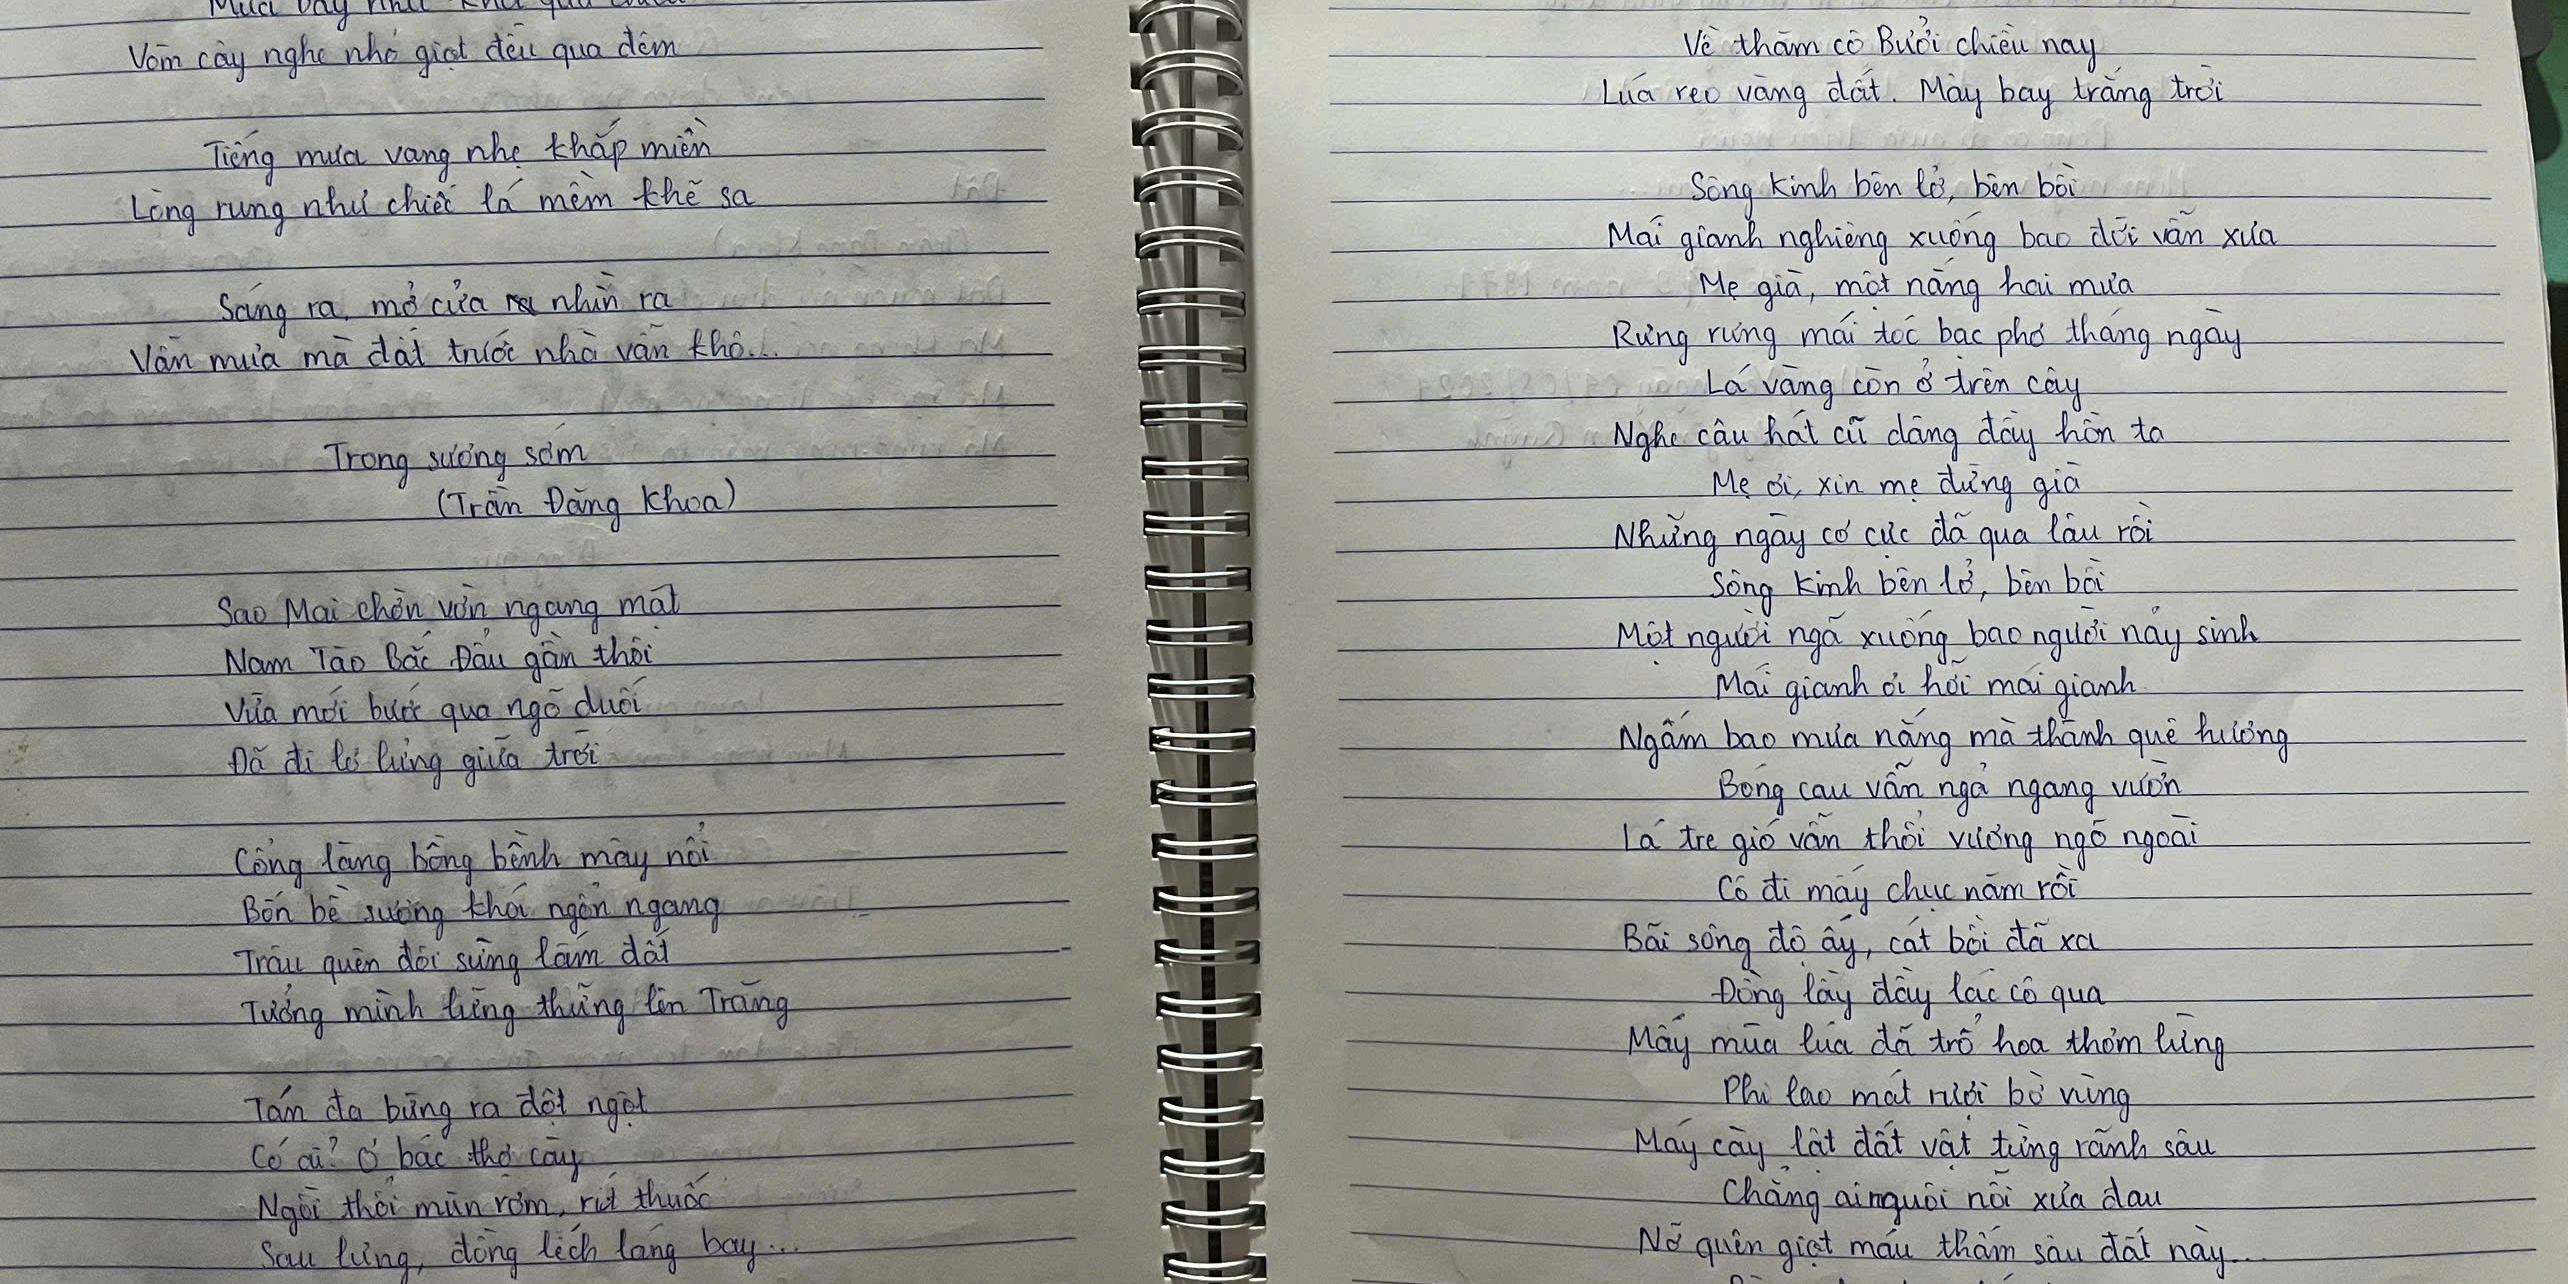 Vòm cây nghe nhỏ giọt đều qua đêm
Tiếng mưa vang nhẹ khắp miền
Lòng rung như chiếc lá mềm khẽ sa
Sáng ra, mở cửa nhìn ra
Vẫn mưa mà đất trước nhà vẫn khô...
Trong sương sớm
(Trần Đăng Khoa)
Sao Mai chờn vờn ngang mặt
Nam Tào Bắc Đẩu gần thôi
Vừa mới bước qua ngõ duối
Đã đi lơ lửng giữa trời
Cổng làng bồng bềnh mây nổi
Bốn bề sương khói ngổn ngang
Trâu quên đôi sừng lấm đất
Tưởng mình lững thững lên Trăng
Tán đa bừng ra đột ngột
Có ai? Ồ bác thợ cày
Ngồi thổi mùn rơm, rít thuốc
Sau lưng, đóng lếch lang bay...
Về thăm cô Bưởi chiều nay
Lúa reo vàng đất. Mây bay trắng trời
Sông Kinh bên lở, bên bồi
Mái gianh nghiêng xuống bao đời vẫn xưa
Mẹ già, một nắng hai mưa
Rưng rưng mái tóc bạc phơ tháng ngày
Lá vàng còn ở trên cây
Nghe câu hát cũ dâng đầy hồn ta
Mẹ ơi, xin mẹ đừng già
Những ngày cơ cực đã qua lâu rồi
Sông Kinh bên lở, bên bồi
Một người ngã xuống bao người nảy sinh
Mái gianh ơi hỡi mái gianh
Ngấm bao mưa nắng mà thành quê hương
Bóng cau vẫn ngả ngang vườn
Lá tre gió vẫn thổi vương ngõ ngoài
Cô đi mấy chục năm rồi
Bãi sông độ ấy, cát bồi đã xa
Đồng lầy đầy lác cô qua
Mấy mùa lúa đã trổ hoa thơm lừng
Phi lao mát rười bờ vùng
Máy cày lật đất vật từng rãnh sâu
Chẳng ai nguôi nỗi xưa đau
Nỡ quên giọt máu thấm sâu đất này...